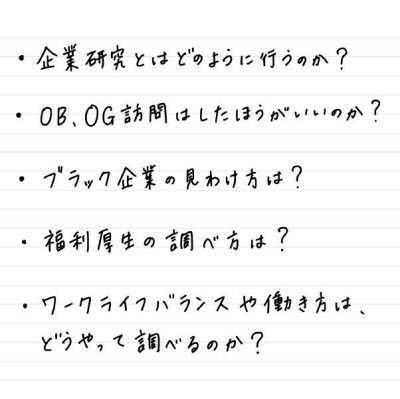 ・企業研究とはどのように行うのか？
・OB、OG訪問はしたほうがいいのか？
・ブラック企業の見わけ方は？
・福利厚生の調べ方は？
・ワークライフバランスや働き方は、
どうやって調べるのか？